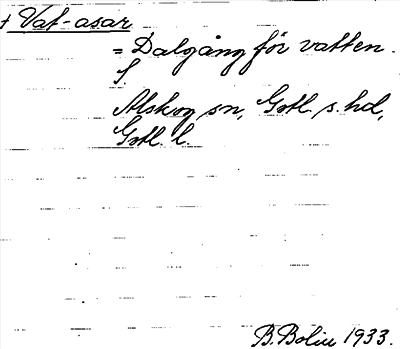 + Vat-asar
= Dalgång för vatten.
S.
Alskog sn, Gotl. s. hd,
Gotl. l.
B. Bolin 1933.